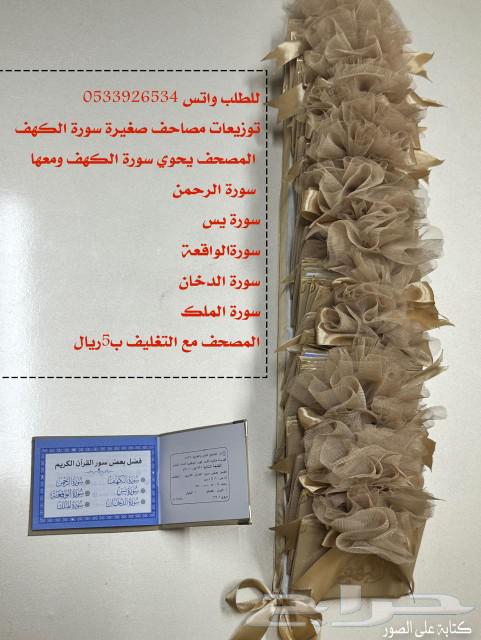 للطلب واتس 0533926534
توزيعات مصاحف صغيرة سورة الكهف
المصحف يحوي سورة الكهف ومعها
سورة الرحمن
سورة يس
سورةالواقعة
سورة الدخان
سورة الملك
المصحف مع التغليف ب5ريال
فضل بعض سور القرآن الكريم
سورة الكهف سورة الرحمن
سورة يس سورة الواقعة
سورة الدخان سورة الملك
حراج
كتابة على الصور